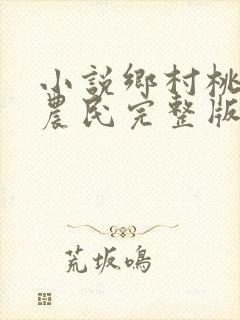 小説鄉村桃
農民完整版
荒坂鳴